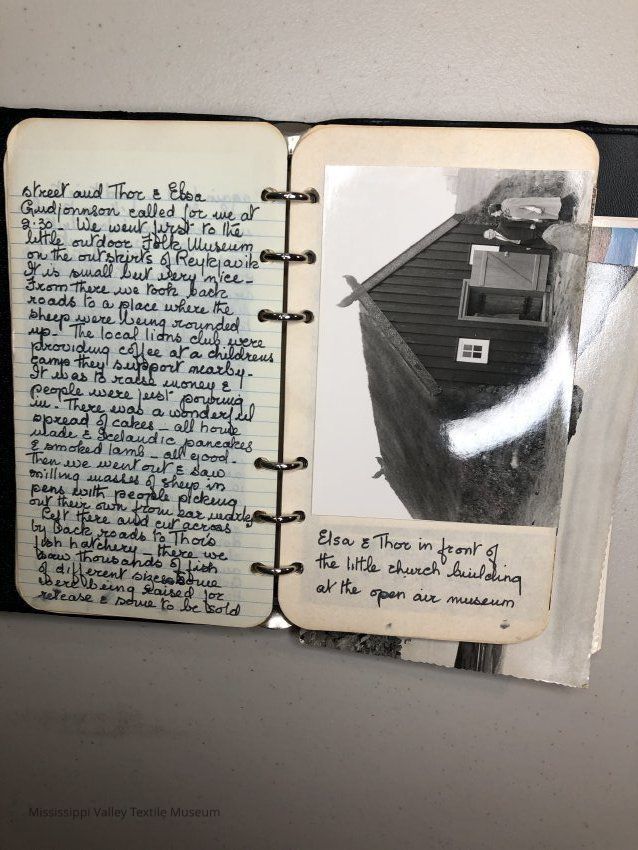 street and Thor & Elsa
Gudjonnson called for we at
2:30 - We went first to the
little outdoor Folk Museum
on the outskirts of Reykjavik
It is small but very nice -
From there we took back
roads to a place where the
sheep were being rounded
up - The local lions club were
providing coffee at a childrens
camp they support nearby -
It was to raise money &
people were just pouring
in. There was a wonderful
spread of cakes - all home
made & Icelandic pancakes
& smoked lamb - all good -
Then we went out & saw
milling masses of sheep in
pens with people picking
out their own from ear marks
Left there and cut across
by back roads to Thor's
fish hatchery - there we
saw thousands of fish
of different sizes some
were being raised for
release & some to be sold
Elsa & Thor in front of
the little church building
at the open air museum
Mississippi Valley Textile Museum